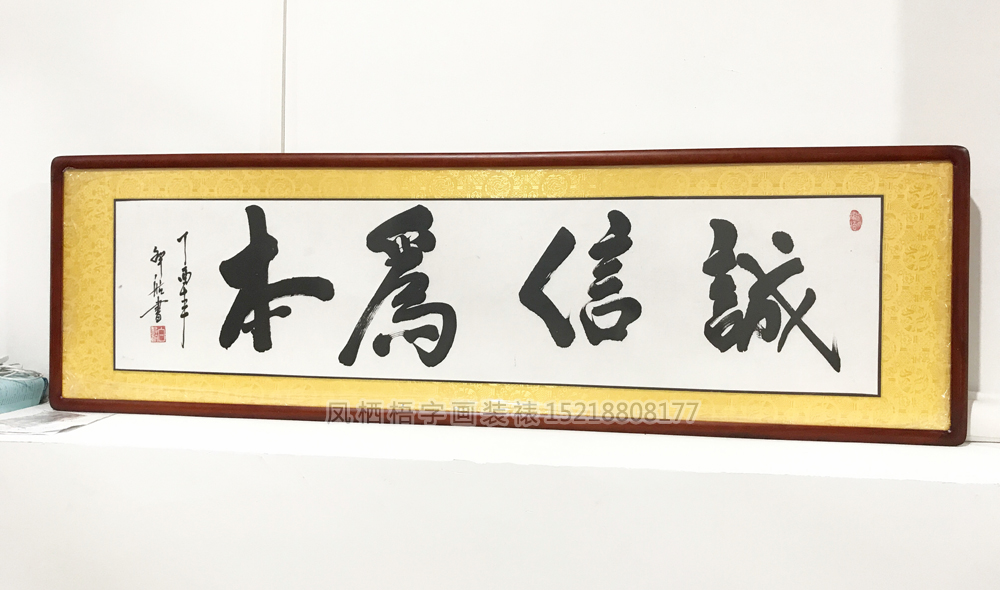 誠信為本
丁酉年
書
凤栖梧字画装裱 15218808177